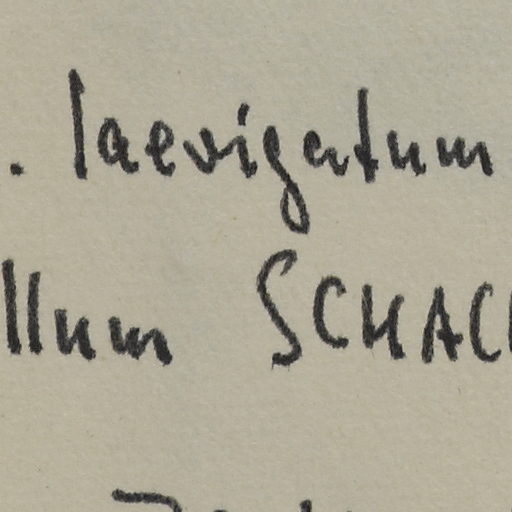 . laevigatum
llum SCHAC